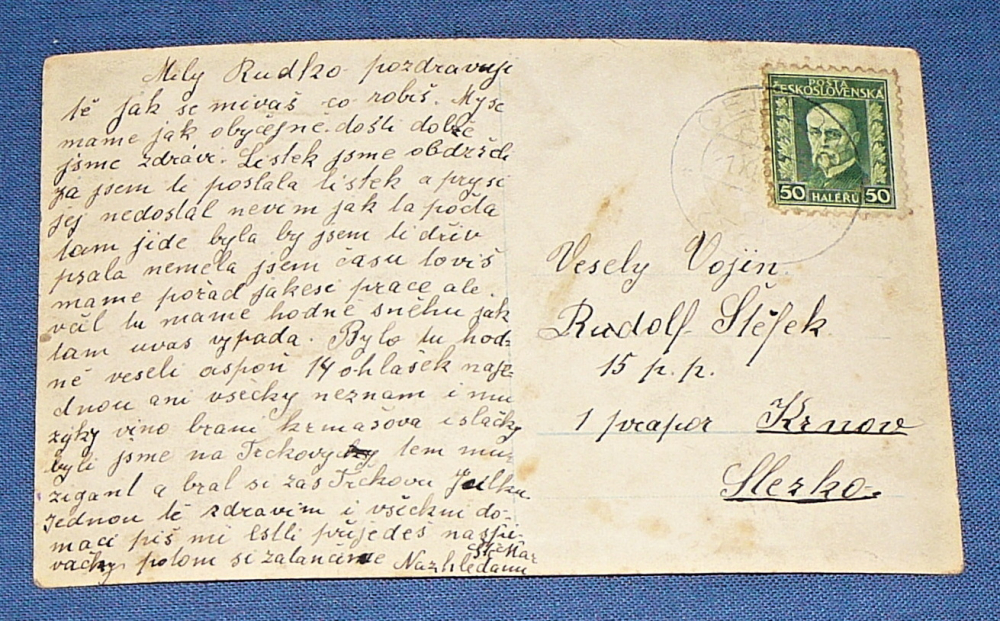 Milý Rudko pozdravuji
tě jak se mivaš co robiš. My se
mame jak obyčejně dosti dobře
jsme zdrávi. Listek jsme obdrželi
ja jsem ti poslala listek a pry si
jej nedostal nevim jak ta pošta
tam jide byla by jsem ti dřiv
psala neměla jsem času toviš
mame pořad jakesi prace ale
včil tu mame hodně sněhu jak
tam uvas vypada. Bylo tu hod-
ně veseli aspoň 14 ohlašek naje-
dnou ani všecky neznam i mu
zyky vino brani krmašova i slačky
byli jsme na Trčkovy tem mu-
zigant a bral si zas Trčkovu Julku
Jednou tě zdravim i všickni do-
maci piš mi Estli přijedeš na spi-
vačky potom si zatančime Nazhledanu
POŠTA
ČESKOSLOVENSKÁ
50 HALÉŘŮ 50
Vesely Vojin
Rudolf Štěfek
15 p. p.
1 prapor Krnov
Slezko.